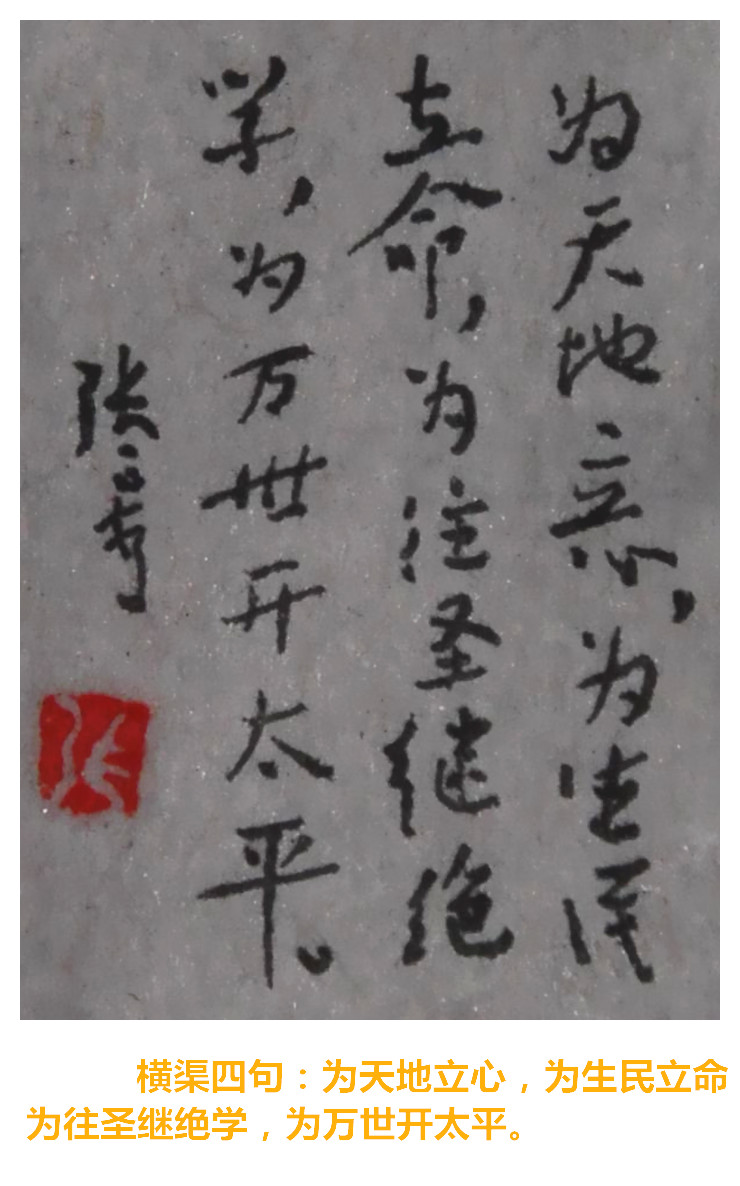 为天地立心，为生民
立命，为往圣继绝
学，为万世开太平。
张
横渠四句：为天地立心，为生民立命
为往圣继绝学，为万世开太平。